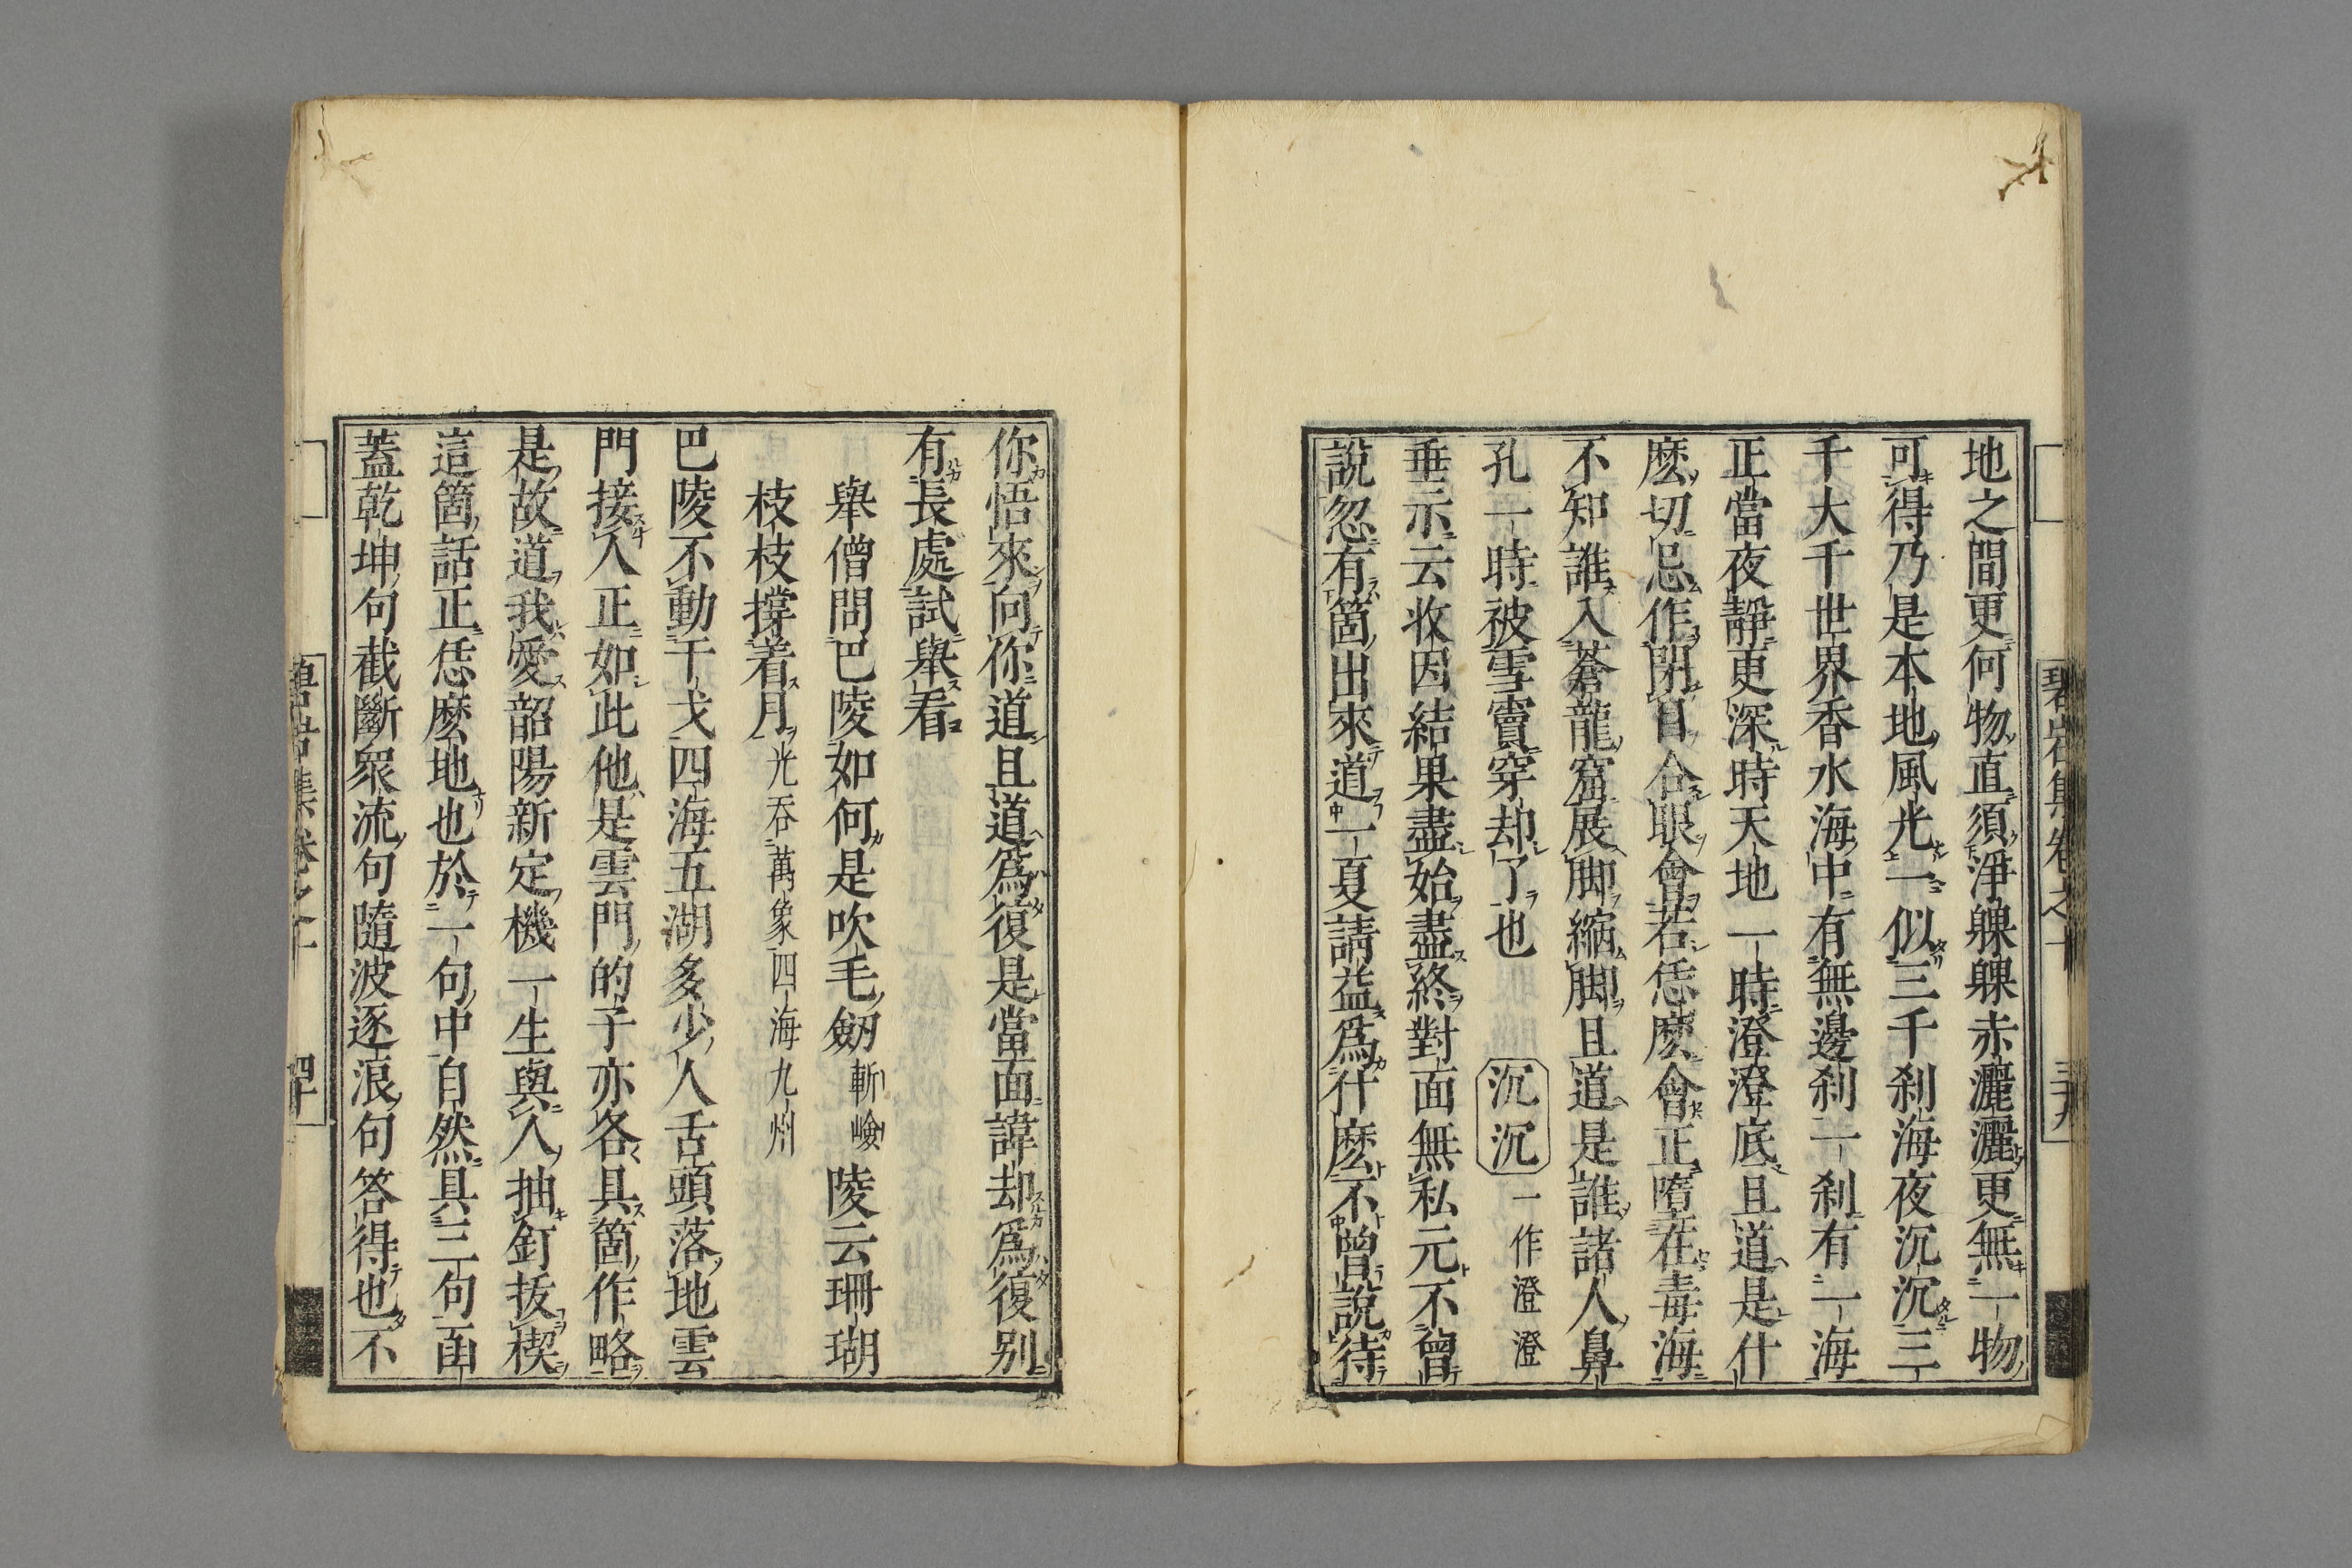 地之間更何物直須淨躶躶赤灑灑更無一物
可得乃是本地風光一似三千刹海夜沉沉三
千大千世界香水海中有無邊刹一刹有一海
正當夜靜更深時天地一時澄澄底且道是什
麽切忌作閉目合眼會若恁麽會正墮在毒海
不知誰入蒼龍窟展脚縮脚且道是誰諸人鼻
孔一時被雪竇穿却了也 沉沉 一作澄澄
垂示云收因結果盡始盡終對面無私元不曾
說忽有箇出來道一夏請益爲什麽不曾說待
碧岩集卷之十 三十九
你悟來向你道且道爲復是當面諱却爲復別
有長處試舉看
舉僧問巴陵如何是吹毛劒 斬嶮 陵云珊瑚
枝枝撐着月 光吞萬象四海九州
巴陵不動干戈四海五湖多少人舌頭落地雲
門接人正如此他是雲門的子亦各具箇作略
是故道我愛韶陽新定機一生與人抽釘拔楔
這箇話正恁麽地也於一句中自然具三句函
蓋乾坤句截斷衆流句隨波逐浪句答得也不
碧岩集卷之十 四十